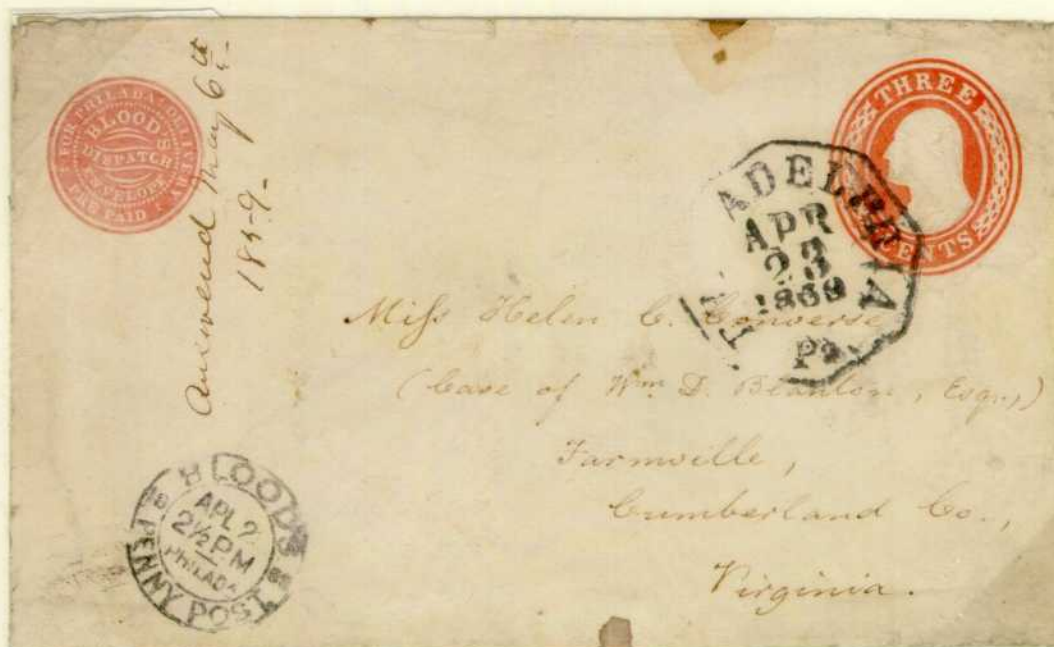 FOR PHILADA DELIVERY
BLOOD'S
DISPATCH
ENVELOPE
PRE PAID
Answered May 6th
1859-
THREE
CENTS
ADELPHIA
APR
23
Pa
Miss Helen C. Converse
(Care of Wm. D. Blanton, Esqr.,)
Farmville,
Cumberland Co.,
Virginia.
BLOOD'S
APL ?
2½ PM
PHILADA
PENNY POST